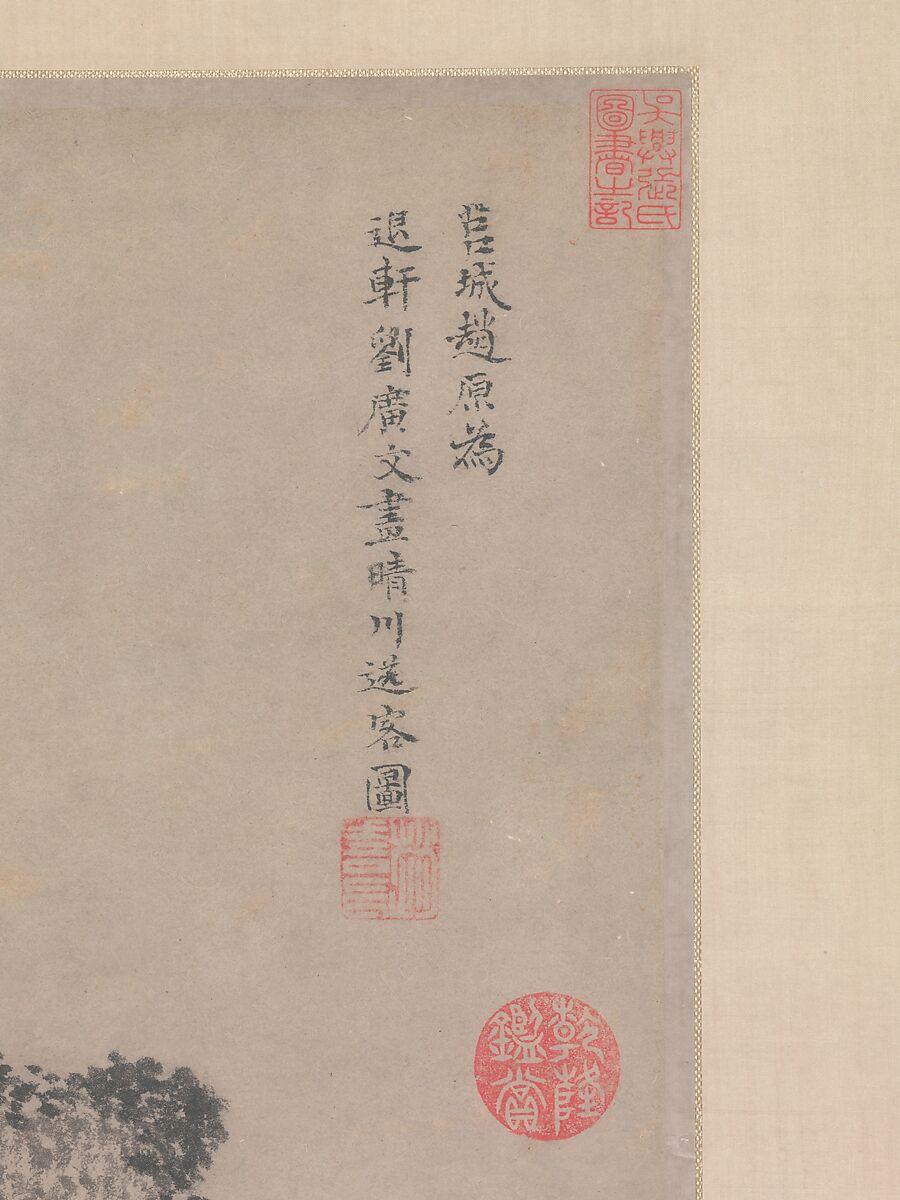 吳興張氏
圖書之記
莒城趙原為
退軒劉廣文畫晴川送客圖
乾隆
鑑賞